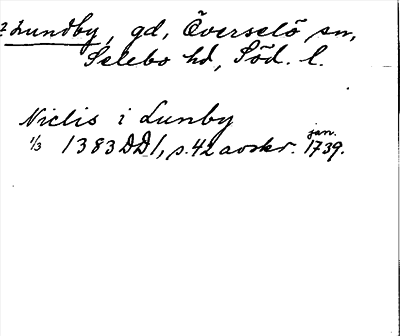 ? Lundby, gd, Överselö sn,
Selebo hd, Söd. l.
Niclis i Lunby
1/3 1383 DD1, s. 42 avskr. jan. 1739.